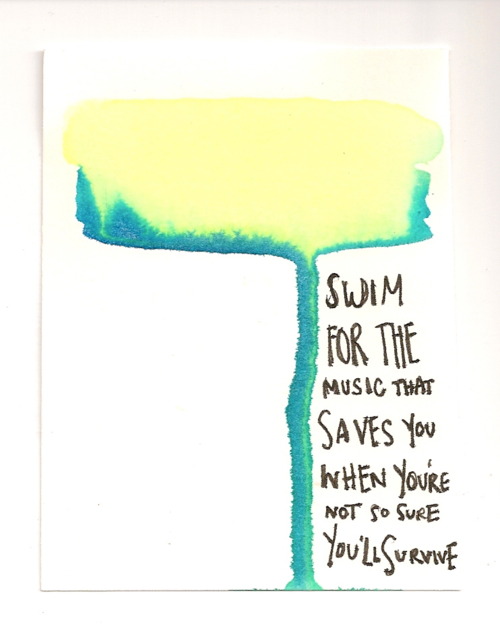 SWIM
FOR THE
MUSIC THAT
SAVES YOU
WHEN YOU'RE
NOT SO SURE
YOU'LL SURVIVE